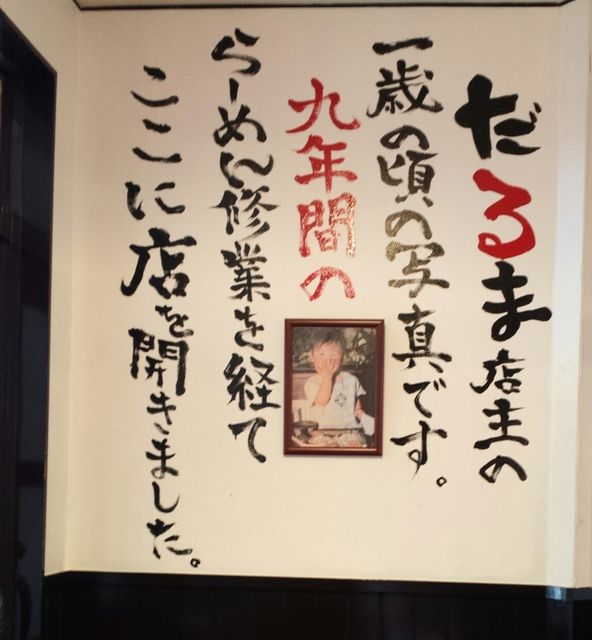 だるま店主の
一歳の頃の写真です。
九年間の
らーめん修業を経て
ここに店を開きました。